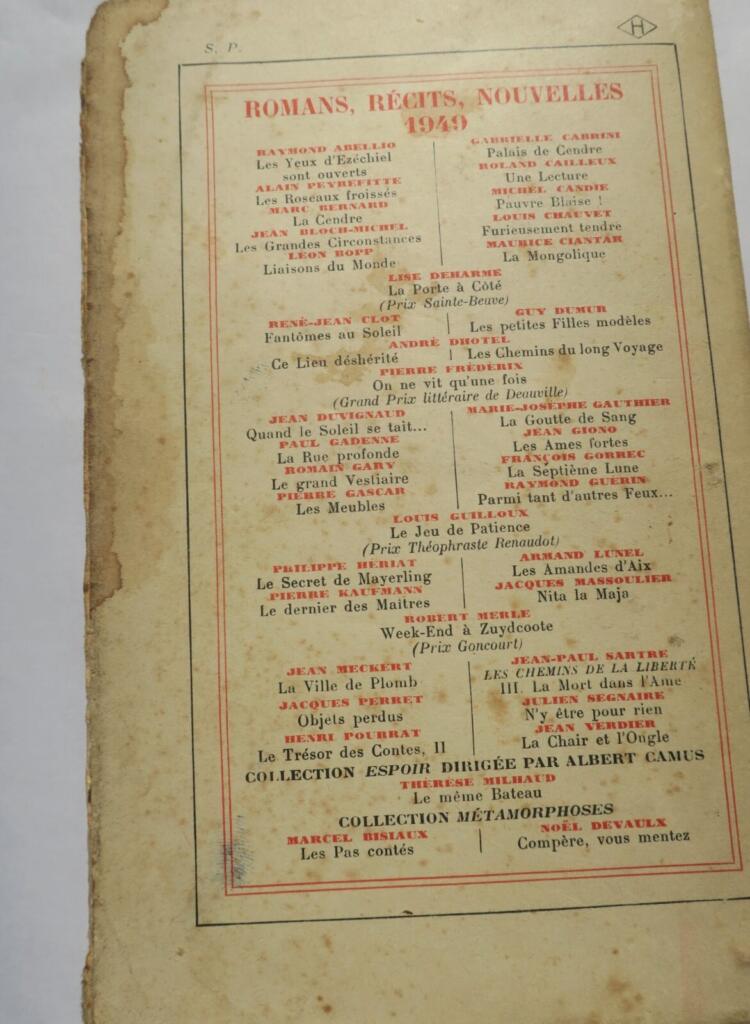 S. P.
H
ROMANS, RÉCITS, NOUVELLES
1949
RAYMOND ABELLIO
Les Yeux d'Ezéchiel
sont ouverts
ALAIN PEYREFITTE
Les Roseaux froissés
MARC BERNARD
La Cendre
JEAN BLOCH-MICHEL
Les Grandes Circonstances
LÉON BOPP
Liaisons du Monde
GABRIELLE CABRINI
Palais de Cendre
ROLAND CAILLEUX
Une Lecture
MICHEL CANDIE
Pauvre Blaise !
LOUIS CHAUVET
Furieusement tendre
MAURICE CIANTAR
La Mongolique
LISE DEHARME
La Porte à Côté
(Prix Sainte-Beuve)
RENÉ-JEAN CLOT
Fantômes au Soleil
GUY DUMUR
Les petites Filles modèles
ANDRÉ DHOTEL
Ce Lieu déshérité
Les Chemins du long Voyage
PIERRE FRÉDÉRIX
On ne vit qu'une fois
(Grand Prix littéraire de Deauville)
JEAN DUVIGNAUD
Quand le Soleil se tait...
PAUL GADENNE
La Rue profonde
ROMAIN GARY
Le grand Vestiaire
PIERRE GASCAR
Les Meubles
MARIE-JOSÈPHE GAUTHIER
La Goutte de Sang
JEAN GIONO
Les Ames fortes
FRANÇOIS GORREC
La Septième Lune
RAYMOND GUÉRIN
Parmi tant d'autres Feux...
LOUIS GUILLOUX
Le Jeu de Patience
(Prix Théophraste Renaudot)
PHILIPPE HÉRIAT
Le Secret de Mayerling
PIERRE KAUFMANN
Le dernier des Maitres
ARMAND LUNEL
Les Amandes d'Aix
JACQUES MASSOULIER
Nita la Maja
ROBERT MERLE
Week-End à Zuydcoote
(Prix Goncourt)
JEAN MECKERT
La Ville de Plomb
JACQUES PERRET
Objets perdus
HENRI POURRAT
Le Trésor des Contes, II
JEAN-PAUL SARTRE
LES CHEMINS DE LA LIBERTÉ
III. La Mort dans l'Ame
JULIEN SEGNAIRE
N'y être pour rien
JEAN VERDIER
La Chair et l'Ongle
COLLECTION ESPOIR DIRIGÉE PAR ALBERT CAMUS
THÉRÈSE MILHAUD
Le même Bateau
COLLECTION MÉTAMORPHOSES
MARCEL BISIAUX
Les Pas contés
NOËL DEVAULX
Compère, vous mentez